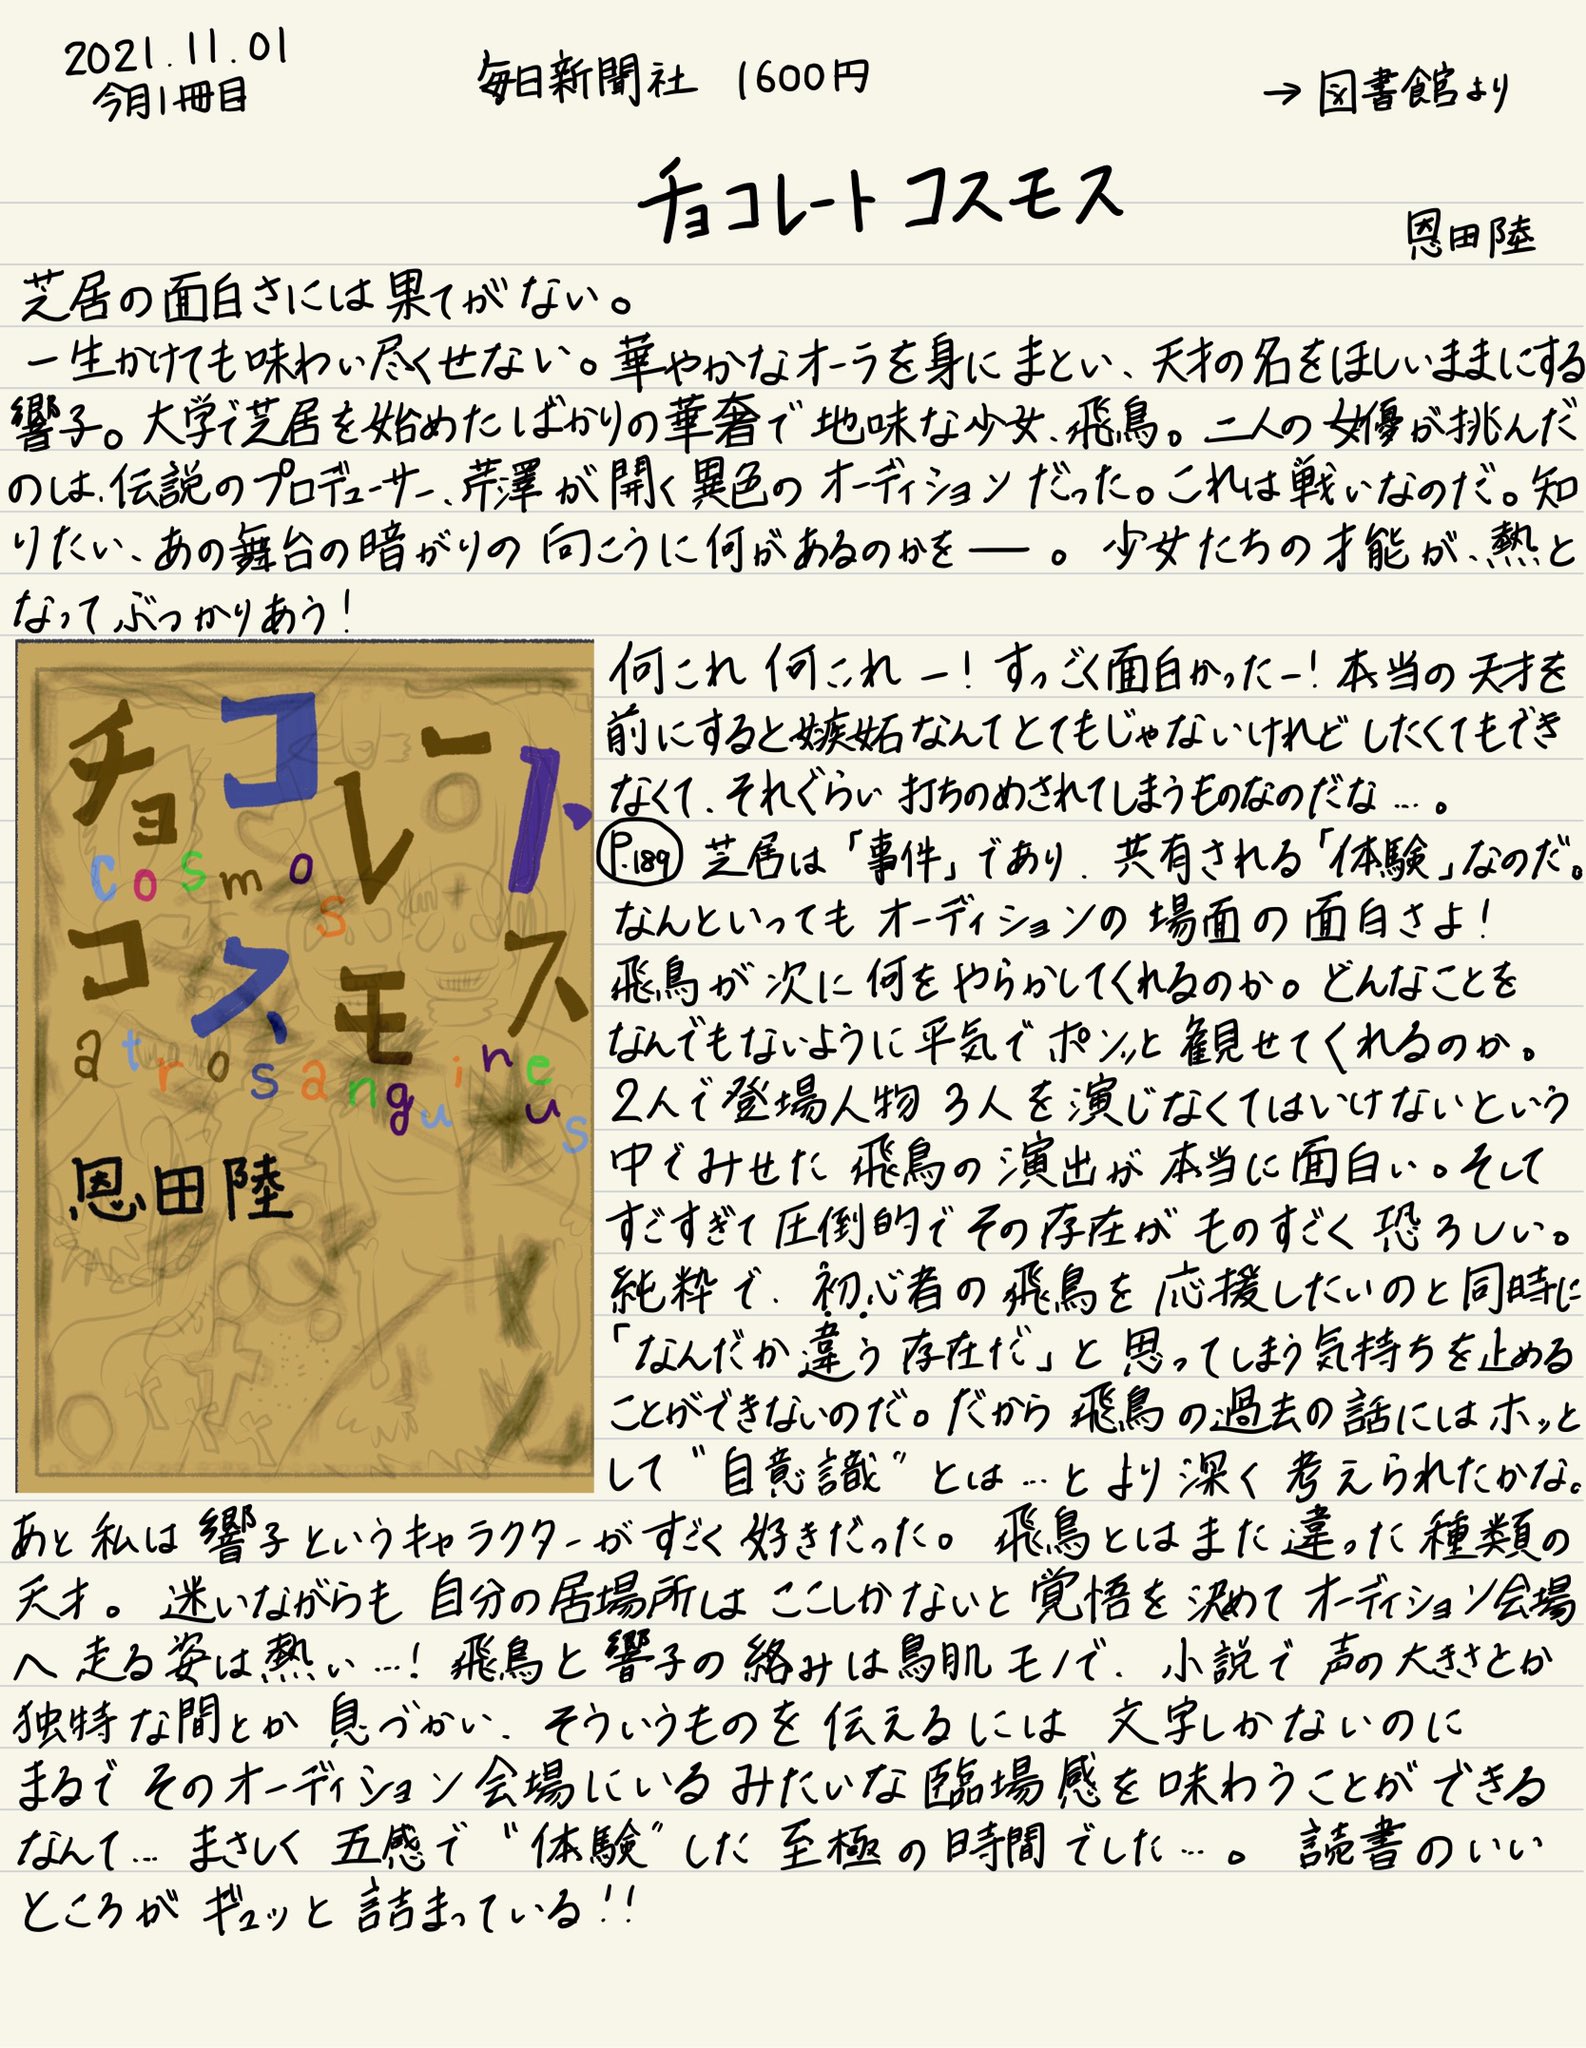 2021.11.01
今月1冊目
毎日新聞社 1600円
→図書館より
チョコレートコスモス
恩田陸
芝居の面白さには果てがない。
一生かけても味わい尽くせない。華やかなオーラを身にまとい、天才の名をほしいままにする
響子。大学で芝居を始めたばかりの華奢で地味な少女、飛鳥。二人の女優が挑んだ
のは、伝説のプロデューサー、芹澤が開く異色のオーディションだった。これは戦いなのだ。知
りたい、あの舞台の暗がりの向こうに何があるのかを――。少女たちの才能が、熱と
なってぶつかりあう!
チョコレート
cosmos
コスモス
atrosanguineus
恩田陸
何これ何これー!すっごく面白かったー!本当の天才を
前にすると嫉妬なんてとてもじゃないけれどしたくてもでき
なくて、それぐらい打ちのめされてしまうものなのだな…。
P.189 芝居は「事件」であり、共有される「体験」なのだ。
なんといってもオーディションの場面の面白さよ!
飛鳥が次に何をやらかしてくれるのか。どんなことを
なんでもないように平気でポンッと観せてくれるのか。
2人で登場人物3人を演じなくてはいけないという
中でみせた飛鳥の演出が本当に面白い。そして
すごすぎて圧倒的でその存在がものすごく恐ろしい。
純粋で、初心者の飛鳥を応援したいのと同時に
「なんだか違う存在だ」と思ってしまう気持ちを止める
ことができないのだ。だから飛鳥の過去の話にはホッと
して"自意識"とは…とより深く考えられたかな。
あと私は響子というキャラクターがすごく好きだった。飛鳥とはまた違った種類の
天才。迷いながらも自分の居場所はここしかないと覚悟を決めてオーディション会場
へ走る姿は熱い…!飛鳥と響子の絡みは鳥肌モノで、小説で声の大きさとか
独特な間とか息づかい、そういうものを伝えるには文字しかないのに
まるでそのオーディション会場にいるみたいな臨場感を味わうことができる
なんて…まさしく五感で"体験"した至極の時間でした…。読書のいい
ところがギュッと詰まっている!!